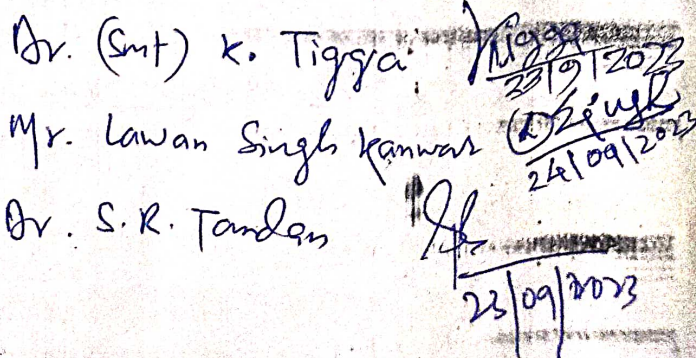 Dr. (Smt) K. Tigga KTigga
23/9/2023
Mr. Lawan Singh Kanwar
24/09/2023
Dr. S.R. Tandan
23/09/2023